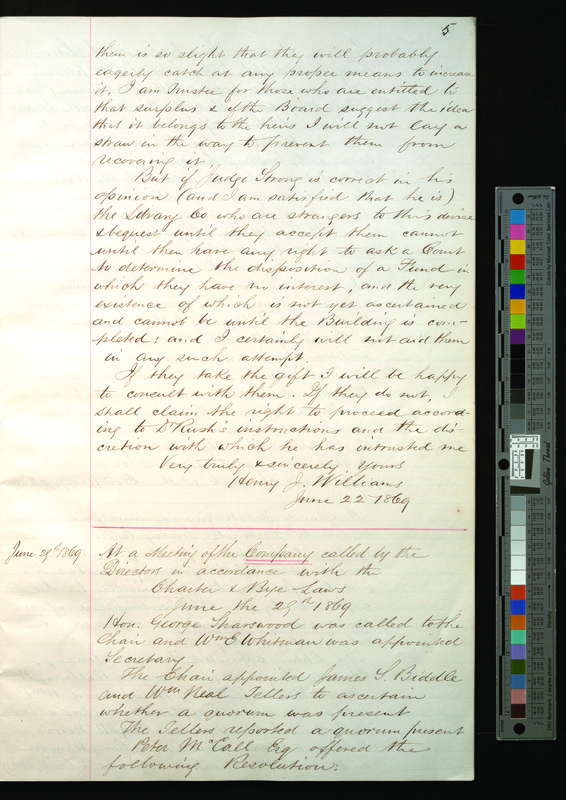 5
them is so slight that they will probably
eagerly catch at any proper means to increase
it, I am Trustee for those who are entitled to
that surplus & if the Board suggest the idea
that it belongs to the heirs I will not lay a
straw in the way to prevent them from
recovering it.
But if Judge Strong is correct in his
opinion (and I am satisfied that he is)
the Library Co who are strangers to this devise
& bequest until they accept them cannot
until then have any right to ask a Court
to determine the disposition of a Fund in
which they have no interest, and the very
existence of which is not yet ascertained
and cannot be until the Building is com-
pleted; and I certainly will not aid them
in any such attempt.
If they take the gift I will be happy
to consult with them. If they do not, I
shall claim the right to proceed accord-
ing to Dr Rush's instructions and the dis-
cretion with which he has intrusted me
Very truly & sincerely Yours
Henry J. Williams
June 22 1869
June 29th 1869
At a Meeting of the Company called by the
Directors in accordance with the
Charter & Bye-Laws
June the 29th 1869
Hon: George Sharswood was called to the
Chair and Wm E Whitman was appointed
Secretary
The Chair appointed James S. Biddle
and Wm Neal Tellers to ascertain
whether a quorum was present
The Tellers reported a quorum present
Peter McCall Esq offered the
following Resolution: